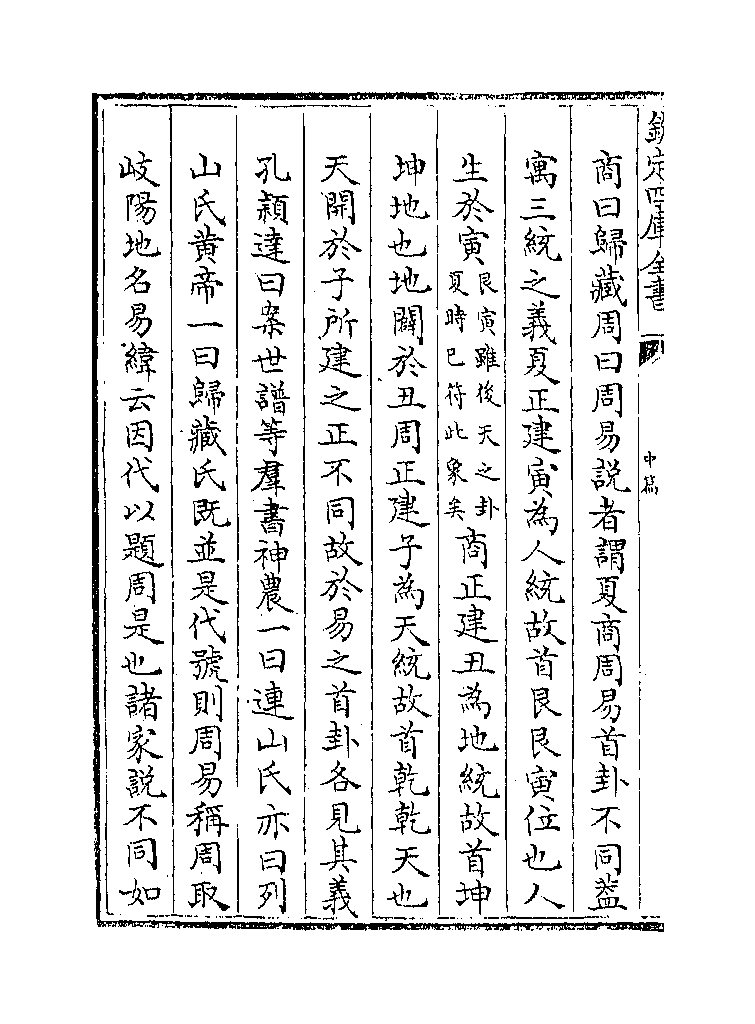 欽定四庫全書
中篇
商曰歸藏周曰周易說者謂夏商周易首卦不同蓋
寓三統之義夏正建寅為人統故首艮艮寅位也人
生於寅艮寅雖後天之卦夏時已符此象矣商正建丑為地統故首坤
坤地也地闢於丑周正建子為天統故首乾乾天也
天開於子所建之正不同故於易之首卦各見其義
孔穎達曰案世譜等羣書神農一曰連山氏亦曰列
山氏黄帝一曰歸藏氏既並是代號則周易稱周取
岐陽地名易緯云因代以題周是也諸家說不同如